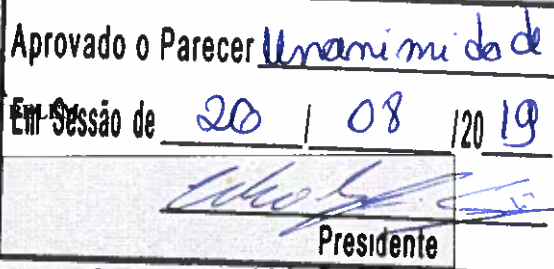 Aprovado o Parecer Unanimidade
Em Sessão de 20 / 08 /20 19
Presidente